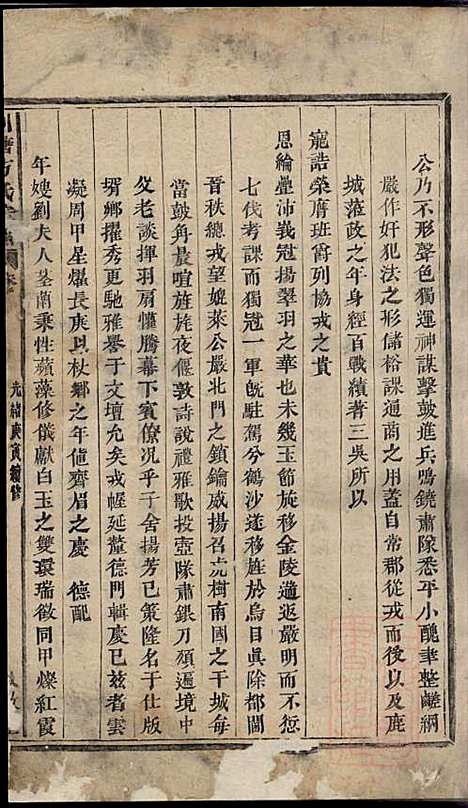 公乃不形聲色獨運神謀擊鼓進兵鳴鐃肅隊悉平小醜聿整鹺綱
嚴作奸犯法之形儲裕課通商之用蓋自常郡從戎而後以及鹿
城蒞政之年身經百戰績著三吳所以
寵誥榮膺班爵列協戎之貴
恩綸疊沛峩冠揚翠羽之華也未幾玉節旋移金陵適返嚴明而不愆
七伐考課而獨冠一軍旣駐駕兮鶴沙遂移旌於烏目眞除都閫
晉秩總戎望媲萊公嚴北門之鎖鑰威揚召虎樹南國之干城每
當鼓角晨喧旌旄夜偃敦詩說禮雅歌投壺隊肅銀刀頌遍境中
父老談揮羽扇懽騰幕下賓僚况乎子舍揚芳已策隆名于仕版
壻鄉擢秀更馳雅譽于文壇允矣戎幄延釐德門輯慶已茲者雲
凝周甲星燿長庚以杖鄉之年值齊眉之慶 德配
年嫂劉夫人荃蘭秉性蘋藻修儀獻白玉之雙環瑞徵同甲燦紅霞
光緒庚寅續修